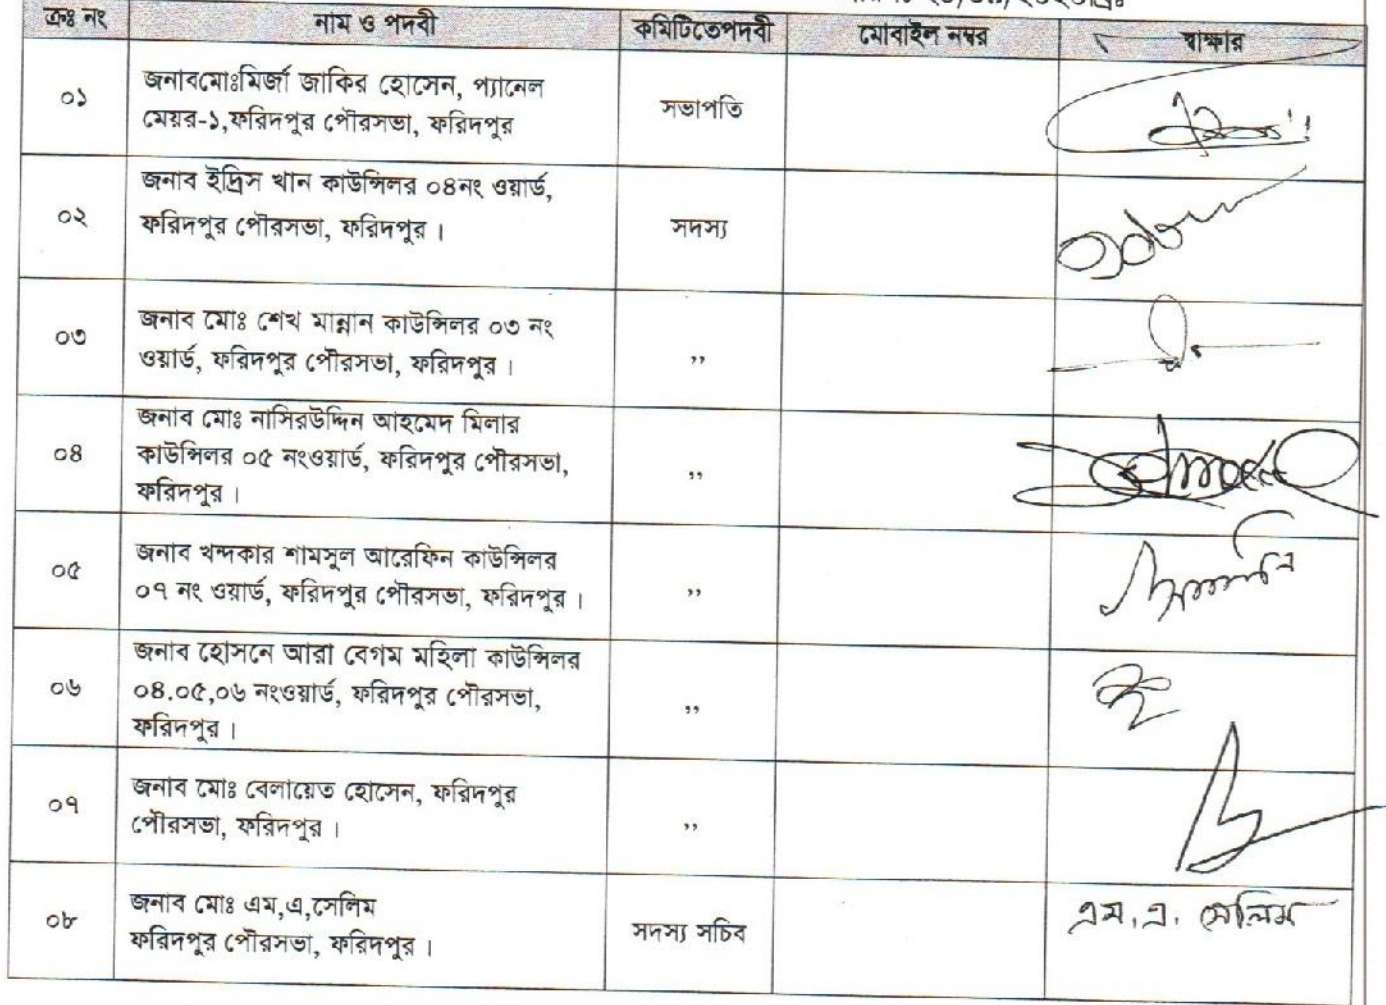 ক্রঃ নং নাম ও পদবী কমিটিতেপদবী মোবাইল নম্বর স্বাক্ষার
০১ জনাবমোঃমির্জা জাকির হোসেন, প্যানেল
মেয়র-১,ফরিদপুর পৌরসভা, ফরিদপুর সভাপতি
০২ জনাব ইদ্রিস খান কাউন্সিলর ০৪নং ওয়ার্ড,
ফরিদপুর পৌরসভা, ফরিদপুর । সদস্য
০৩ জনাব মোঃ শেখ মান্নান কাউন্সিলর ০৩ নং
ওয়ার্ড, ফরিদপুর পৌরসভা, ফরিদপুর । ,,
০৪ জনাব মোঃ নাসিরউদ্দিন আহমেদ মিলার
কাউন্সিলর ০৫ নংওয়ার্ড, ফরিদপুর পৌরসভা, ,,
ফরিদপুর ।
০৫ জনাব খন্দকার শামসুল আরেফিন কাউন্সিলর
০৭ নং ওয়ার্ড, ফরিদপুর পৌরসভা, ফরিদপুর । ,,
০৬ জনাব হোসনে আরা বেগম মহিলা কাউন্সিলর
০৪.০৫,০৬ নংওয়ার্ড, ফরিদপুর পৌরসভা, ,,
ফরিদপুর ।
০৭ জনাব মোঃ বেলায়েত হোসেন, ফরিদপুর
পৌরসভা, ফরিদপুর । ,,
০৮ জনাব মোঃ এম,এ,সেলিম এম. এ. সেলিম
ফরিদপুর পৌরসভা, ফরিদপুর । সদস্য সচিব